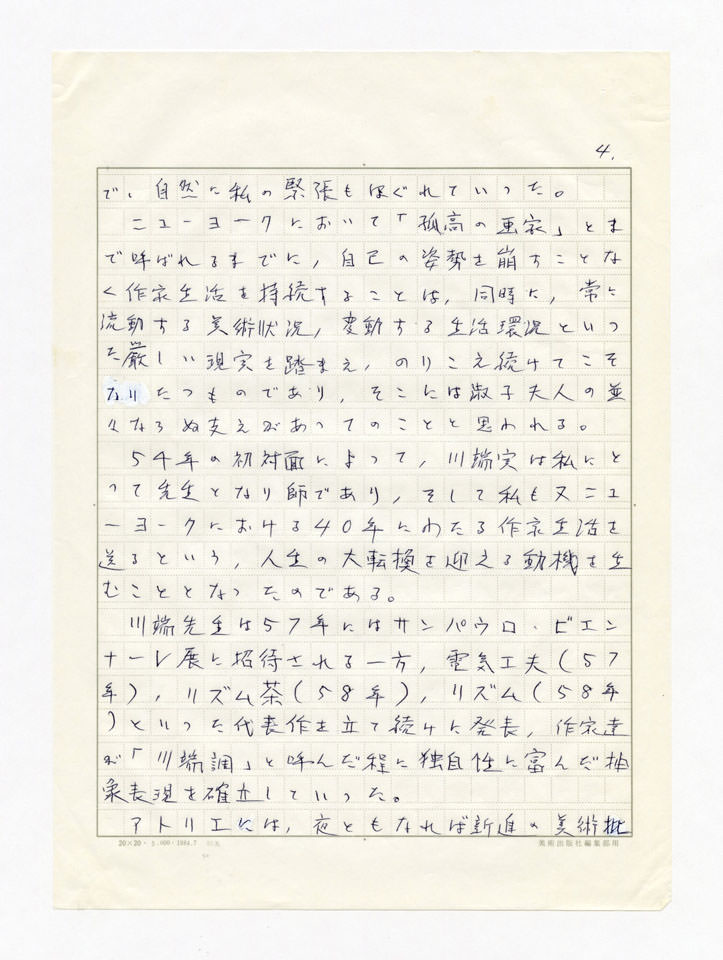 4.
で、自然に私の緊張もほぐれていった。
ニューヨークにおいて「孤高の画家」とま
で呼ばれるまでに，自己の姿勢を崩すことな
く作家生活を持続することは，同時に，常に
流動する美術状況，変動する生活環況といっ
た厳しい現実を踏まえ，のりこえ続けてこそ
なりたつものであり，そこには淑子夫人の並
々ならぬ支えがあってのことと思われる。
54年の初対面によって，川端実は私にと
って先生となり師であり，そして私も又ニュ
ーヨークにおける40年にわたる作家生活を
送るという，人生の大転換を迎える動機を生
むこととなったのである。
川端先生は57年にはサンパウロ・ビエン
ナーレ展に招待される一方，電気工夫(57
年)，リズム茶(58年)，リズム(58年
)といった代表作を立て続けに発表，作家達
が「川端調」と呼んだ程に独自性に富んだ抽
象表現を確立していった。
アトリエには，夜ともなれば新進の美術批
20×20・5.000・1984.7
美術出版社編集部用